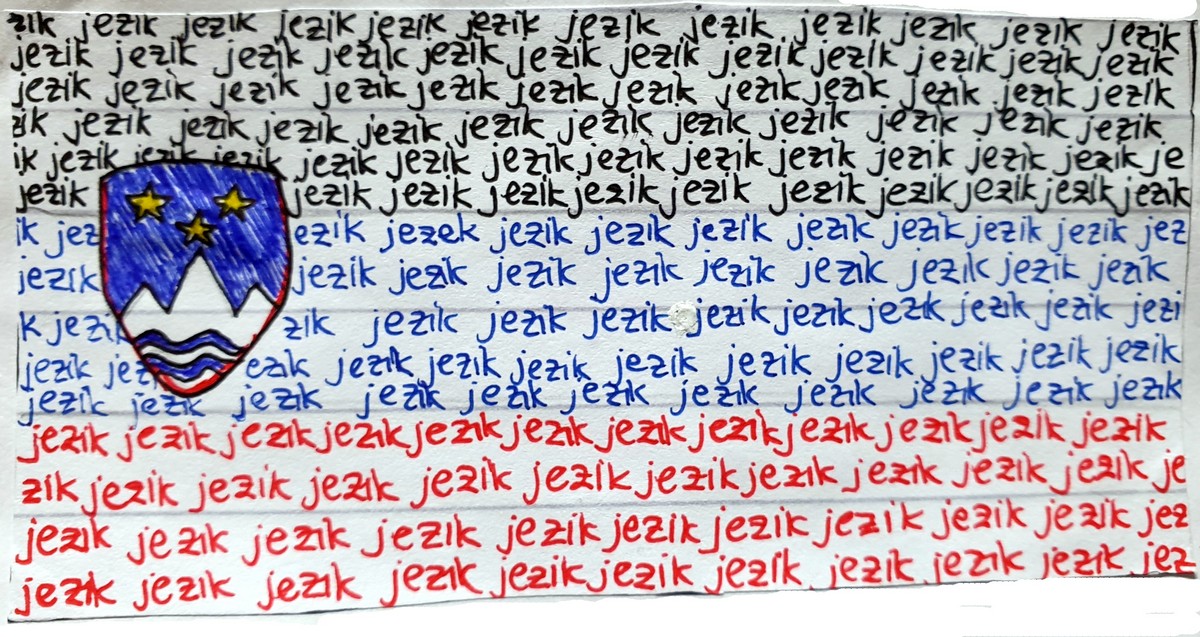 zik jezik jezik jezik jezik jezik jezik jezik jezik jezik jezik jezik
jezik jezik jezik jezik jezik jezik jezik jezik jezik jezik jezik jezik
jezik jezik jezik jezik jezik jezik jezik jezik jezik jezik jezik
zik jezik jezik jezik jezik jezik jezik jezik jezik jezik jezik jezik
ik jezik jezik jezik jezik jezik jezik jezik jezik jezik jezik jezik je
jezik jezik jezik jezik jezik jezik jezik jezik jezik jezik jezik
ik jez ezik jezek jezik jezik jezik jezik jezik jezik jezik jez
jezik jezik jezik jezik jezik jezik jezik jezik jezik jezik
k jezi zik jezik jezik jezik jezik jezik jezik jezik jezi
jezik jez ezik jezik jezik jezik jezik jezik jezik jezik jezik jezik
jezik jezik jezik jezik jezik jezik jezik jezik jezik jezik jezik
jezik jezik jezik jezik jezik jezik jezik jezik jezik jezik jezik jezik
zik jezik jezik jezik jezik jezik jezik jezik jezik jezik jezik je
jezik jezik jezik jezik jezik jezik jezik jezik jezik jezik jez
jezik jezik jezik jezik jezik jezik jezik jezik jezik jezik jez